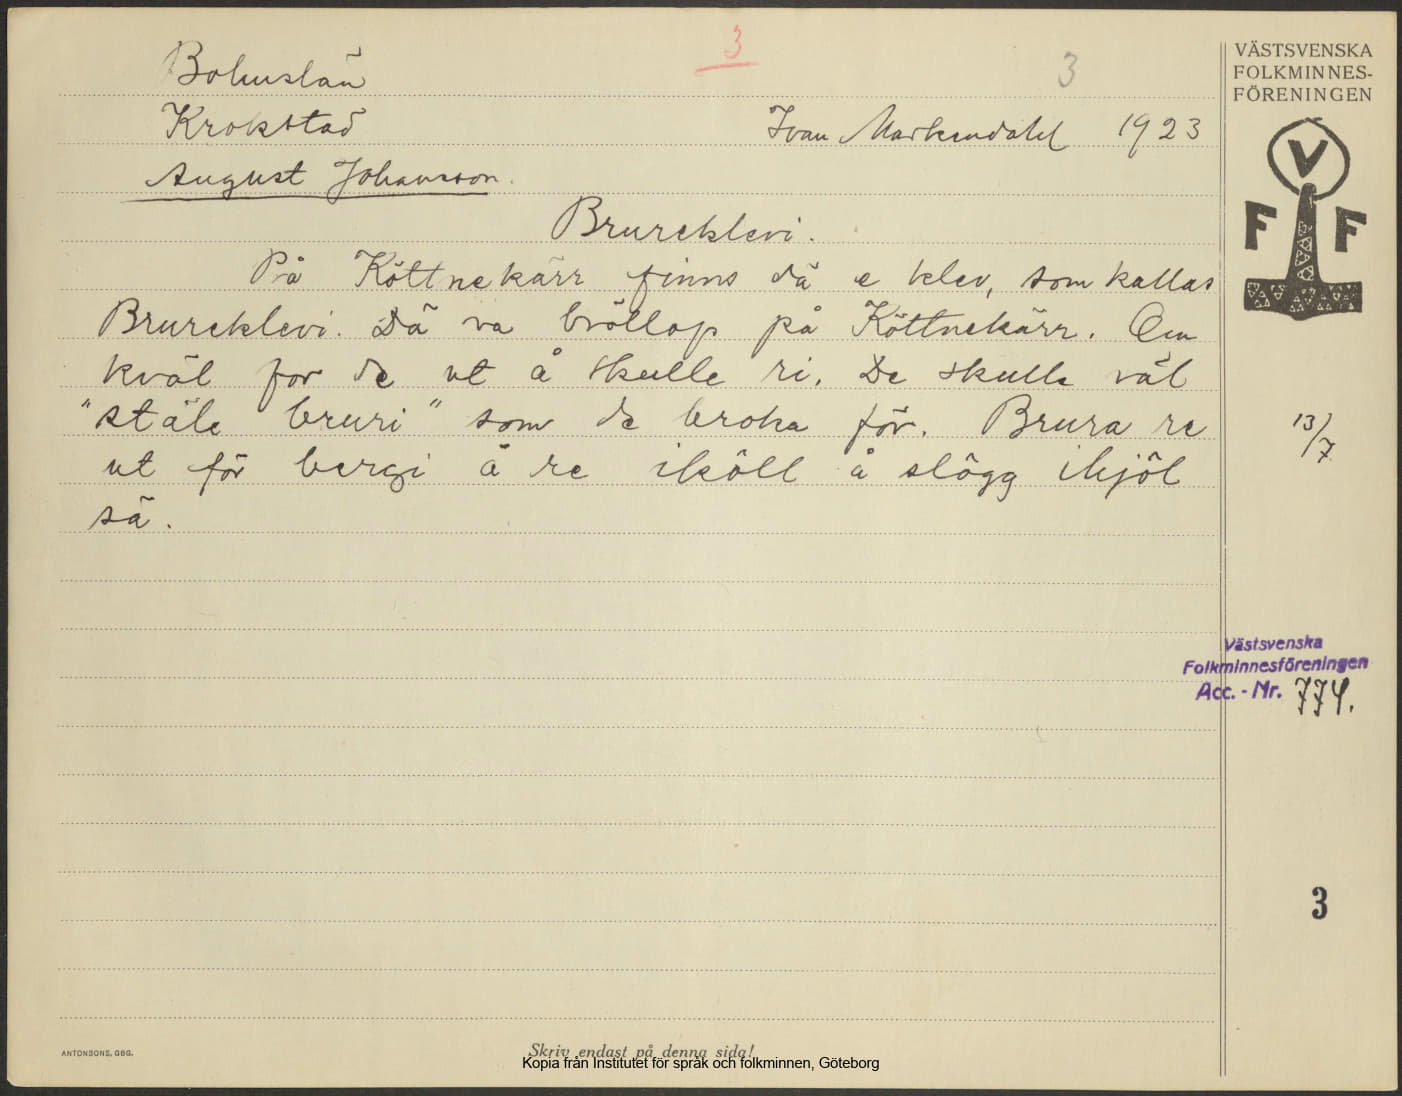 3
3
Bohuslän
Krokstad
Ivan Markendahl 1923
August Johansson.
Brureklevi.
På Köttnekärr finns dä e klev, som kallas
Brureklevi. Dä va bröllop på Köttnekärr. Om
kväl for de ut å skulle ri. De skulle väl
"stäle bruri" som de broka för. Brura re
ut för bergi å re iköll å slögg ihjöl
sä.
VÄSTSVENSKA
FOLKMINNES-
FÖRENINGEN
V
F F
13/7
Västsvenska
Folkminnesföreningen
Acc. - Nr. 774.
3
ANTONSONS, GBG.
Skriv endast på denna sida!
Kopia från Institutet för språk och folkminnen, Göteborg